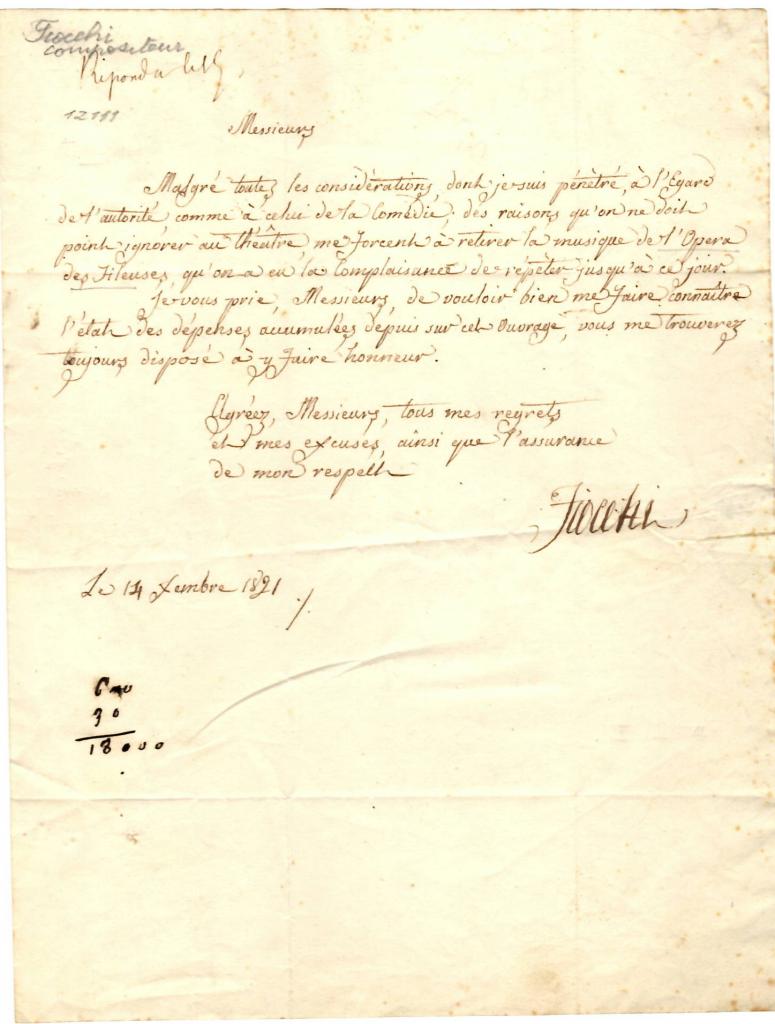 Fiocchi
compositeur
Répondu le 15
12111
Messieurs
Malgré toutes les considérations, dont je suis pénètré, à l'Egard
de l'autorité comme à celui de la Comédie; des raisons qu'on ne doit
point ignorer au théâtre, me forcent à retirer la musique de l'Opera
des Fileuses, qu'on a eu la Complaisance de répèter jusqu'à ce jour.
Je vous prie, Messieurs, de vouloir bien me faire connaître
l'état des dépenses accumulées depuis sur cet Ouvrage, vous me trouverez
toujours disposé à y faire honneur.
Agréez, Messieurs, tous mes regrets
et mes excuses, ainsi que l'assurance
de mon respect
Fiocchi
Le 14 Xembre 1821
600
30
18000